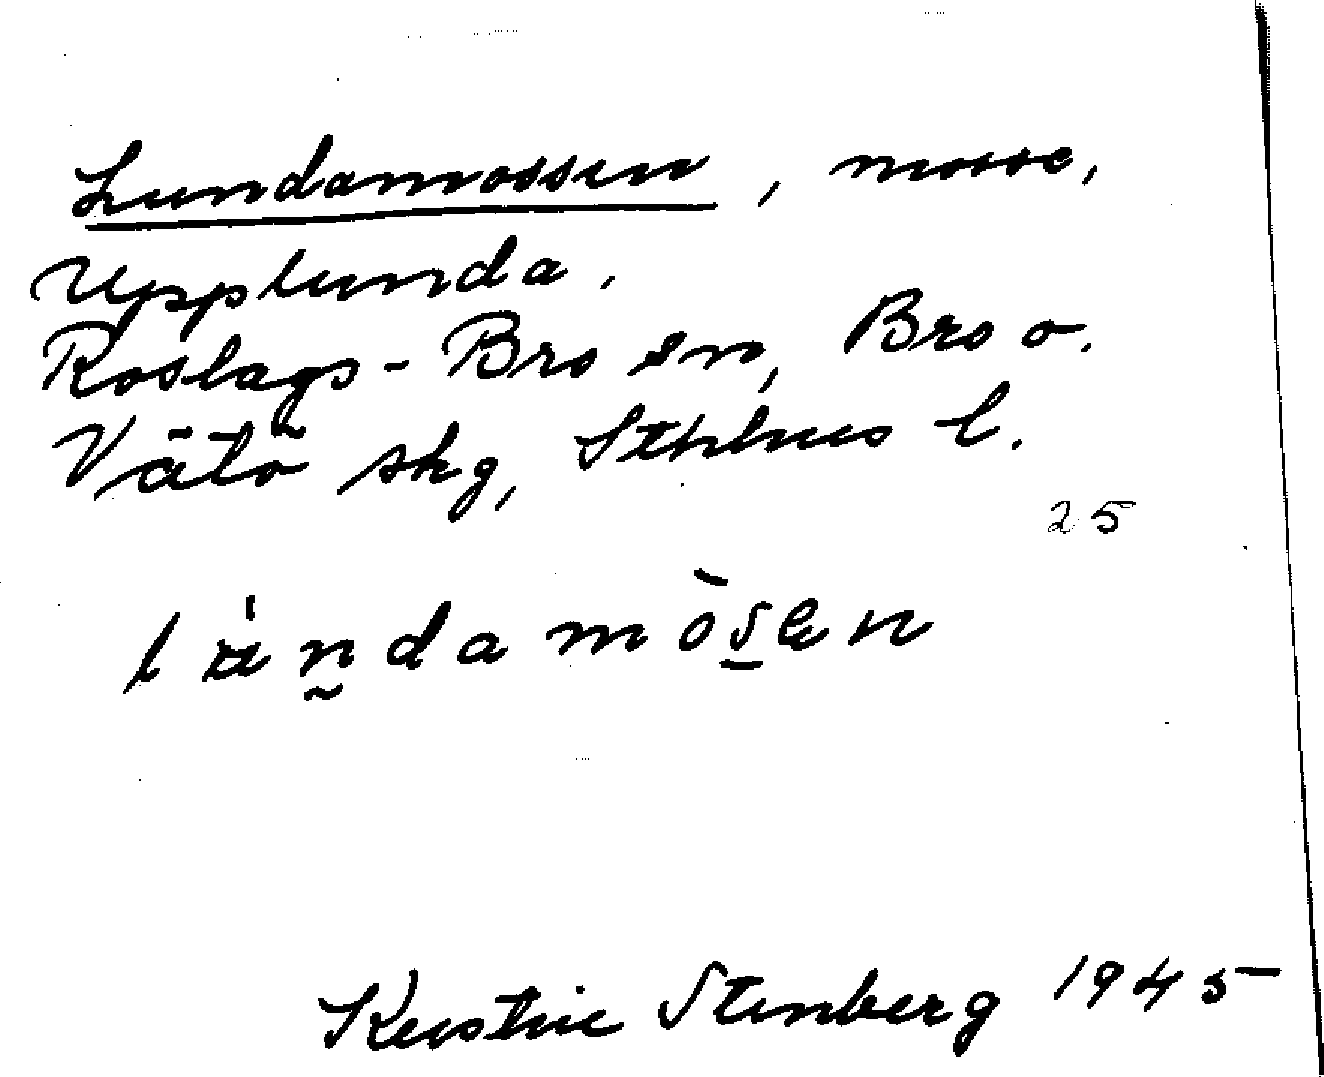 Lundamossen, mosse,
Upplunda.
Roslags-Bro sn, Bro o.
Vätö skg, Sthlms l.
25
Kerstin Stenberg 1945